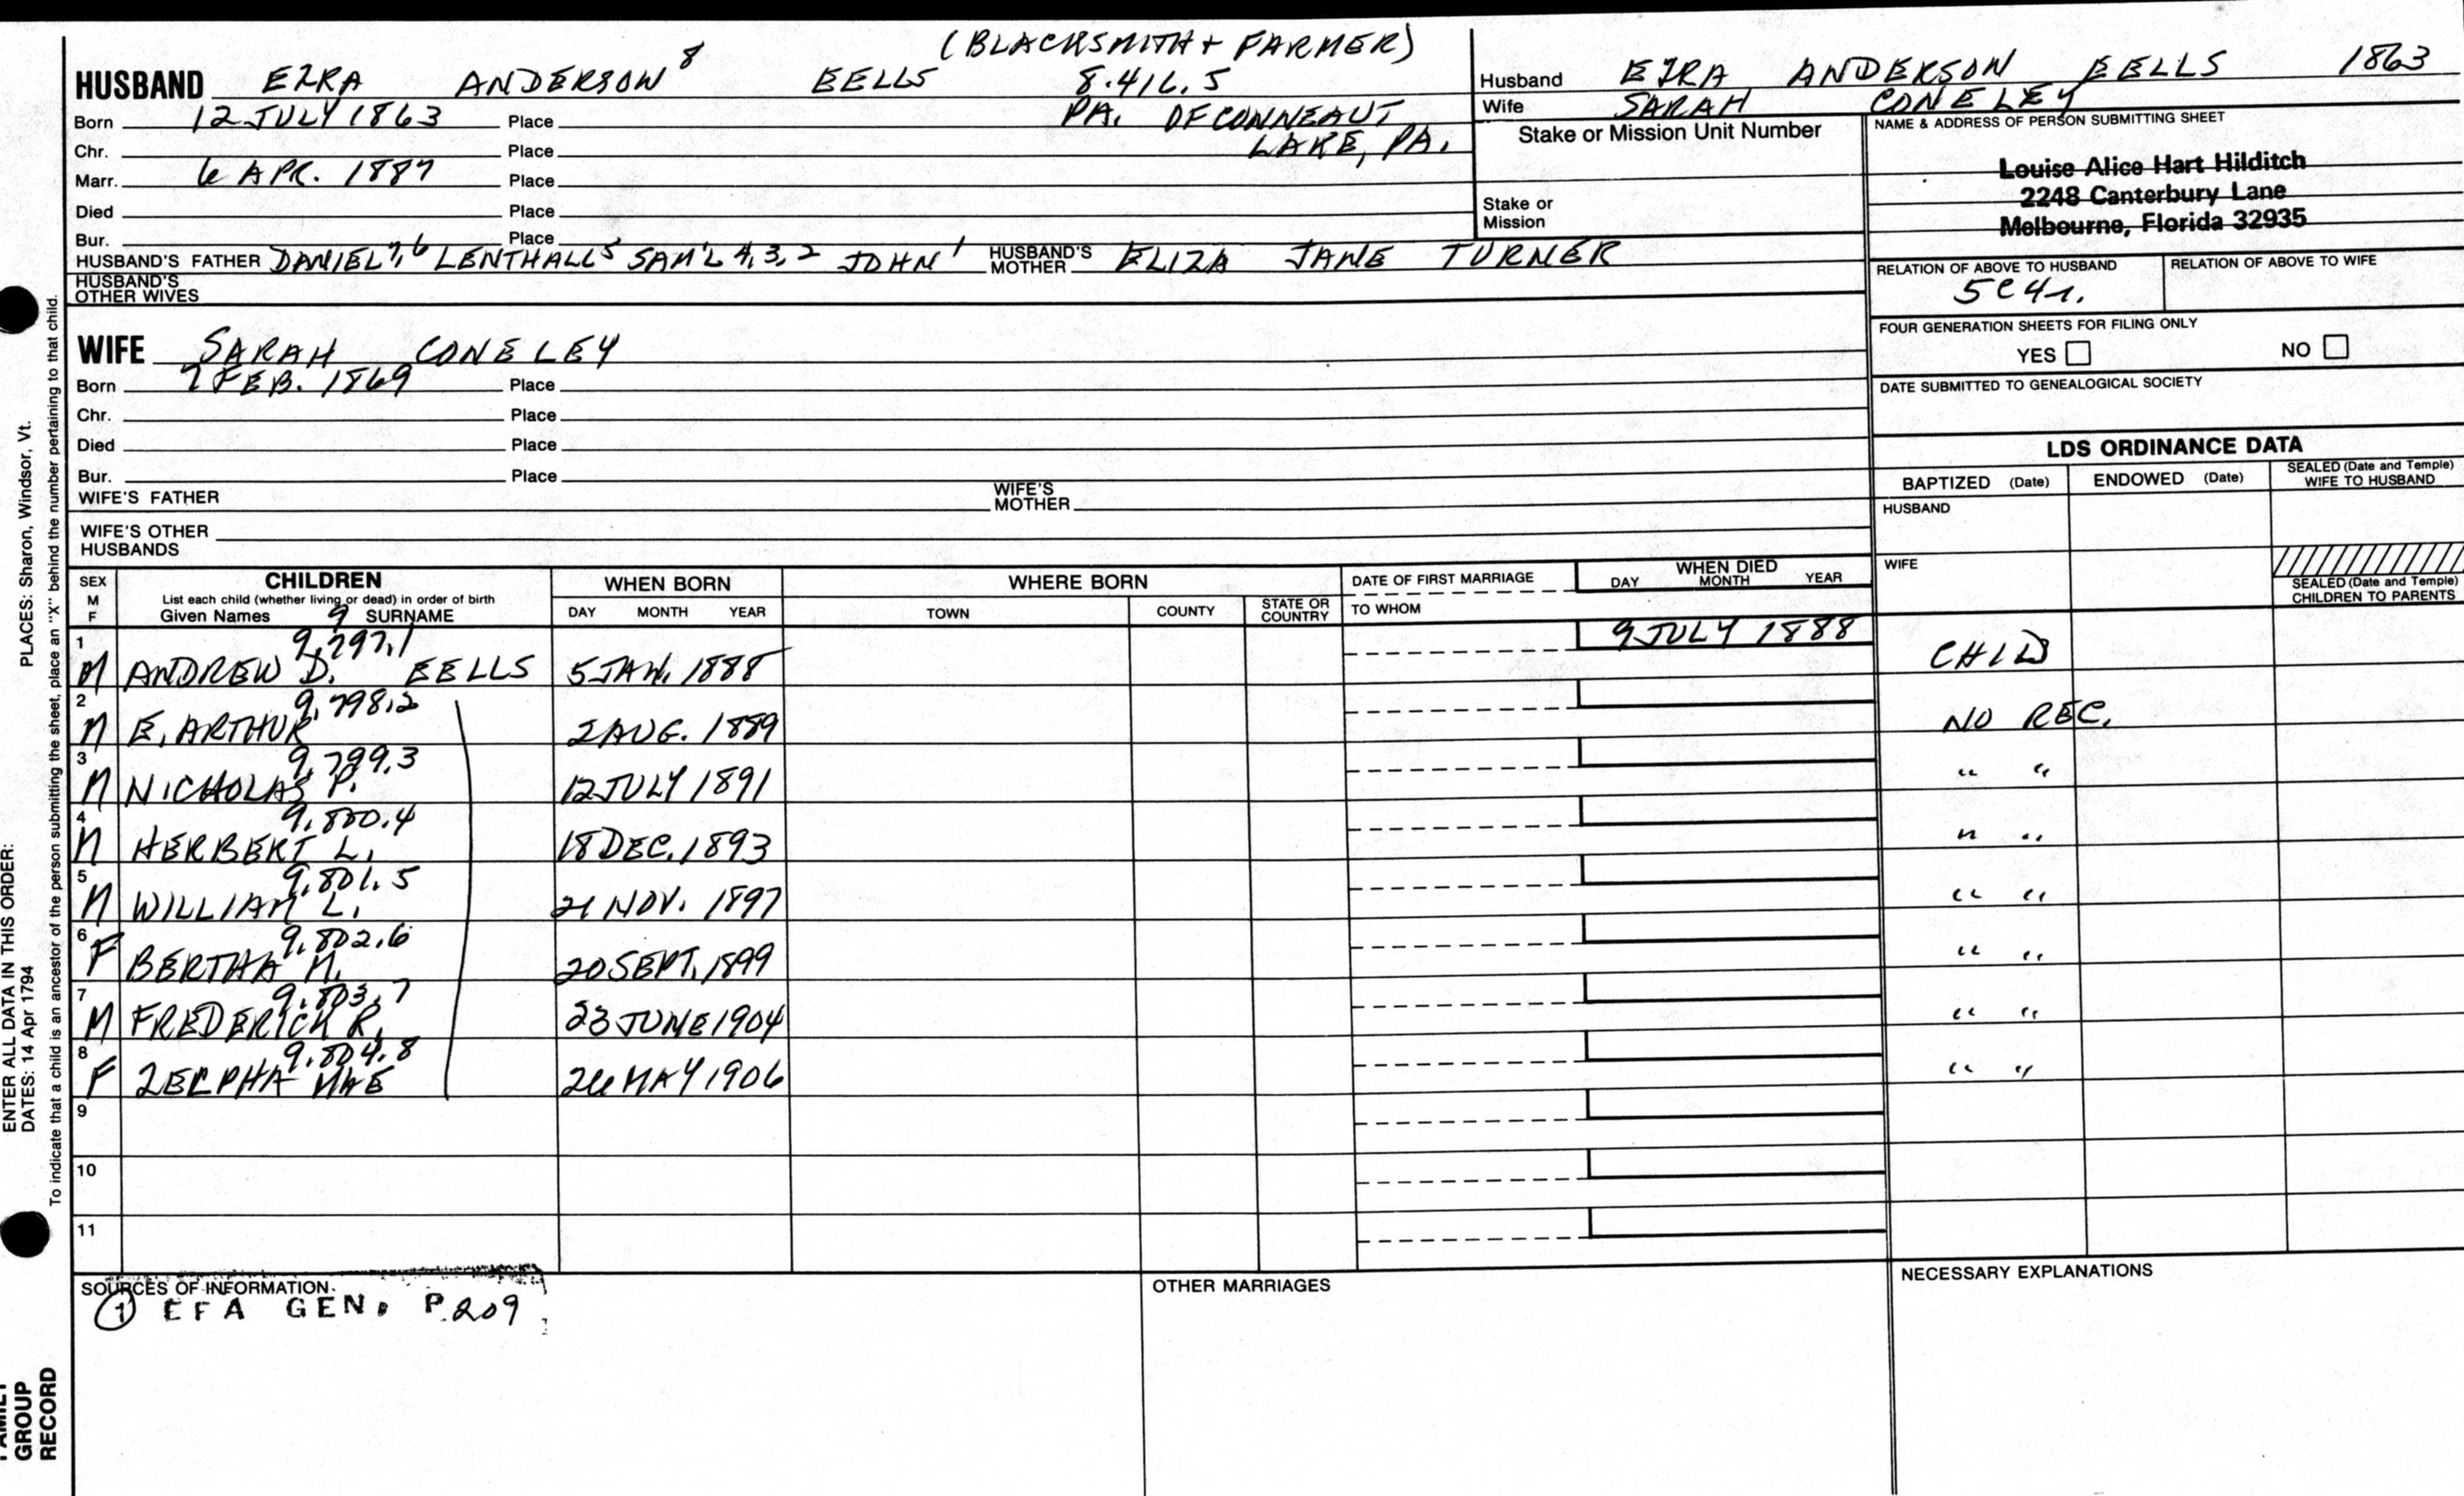 (BLACKSMITH + FARMER)
HUSBAND EZRA ANDERSON 8 EELLS 8.416.5
Born 12 JULY 1863 Place PA. OF CONNEAUT
Chr. Place LAKE, PA.
Marr. 6 APR. 1887 Place
Died Place
Bur. Place
HUSBAND'S FATHER DANIEL 7,6 LENTHALL 5 SAM'L 4,3,2 JOHN 1 HUSBAND'S MOTHER ELIZA JANE TURNER
HUSBAND'S OTHER WIVES
WIFE SARAH CONELEY
Born 7 FEB. 1869 Place
Chr. Place
Died Place
Bur. Place
WIFE'S FATHER WIFE'S MOTHER
WIFE'S OTHER HUSBANDS
Husband EZRA ANDERSON EELLS 1863
Wife SARAH CONELEY
Stake or Mission Unit Number
Stake or Mission
NAME & ADDRESS OF PERSON SUBMITTING SHEET
Louise Alice Hart Hilditch
2248 Canterbury Lane
Melbourne, Florida 32935
RELATION OF ABOVE TO HUSBAND RELATION OF ABOVE TO WIFE
5C4r.
FOUR GENERATION SHEETS FOR FILING ONLY
YES NO
DATE SUBMITTED TO GENEALOGICAL SOCIETY
LDS ORDINANCE DATA
BAPTIZED (Date) ENDOWED (Date) SEALED (Date and Temple) WIFE TO HUSBAND
HUSBAND
WIFE
SEALED (Date and Temple) CHILDREN TO PARENTS
SEX M F CHILDREN WHEN BORN WHERE BORN DATE OF FIRST MARRIAGE WHEN DIED
List each child (whether living or dead) in order of birth
Given Names 9 SURNAME DAY MONTH YEAR TOWN COUNTY STATE OR COUNTRY TO WHOM DAY MONTH YEAR
1 9.797.1 9 JULY 1888
M ANDREW D. EELLS 5 JAN. 1888 CHILD
2 9.798.2
M E. ARTHUR 2 AUG. 1889 NO REC.
3 9.799.3
M NICHOLAS P. 12 JULY 1891 " "
4 9.800.4
M HERBERT L. 18 DEC. 1893 " "
5 9.801.5
M WILLIAM L. 21 NOV. 1897 " "
6 9.802.6
F BERTHA M. 20 SEPT. 1899 " "
7 9.803.7
M FREDERICK R. 23 JUNE 1904 " "
8 9.804.8
F ZELPHA MAE 26 MAY 1906 " "
9
10
11
SOURCES OF INFORMATION. OTHER MARRIAGES NECESSARY EXPLANATIONS
1 EFA GEN. P.209
PLACES: Sharon, Windsor, Vt.
ENTER ALL DATA IN THIS ORDER:
DATES: 14 Apr 1794
To indicate that a child is an ancestor of the person submitting the sheet, place an "X" behind the number pertaining to that child.
GROUP
RECORD